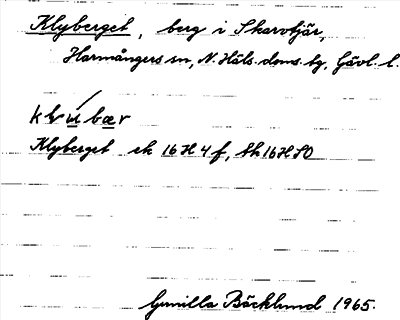 Klyberget, berg i Skarvtjär,
Harmångers sn, N. Häls. doms. tg, Gävl. l.
Klyberget ek 16 H 4 f, bk 16 H SO
Gunilla Bäcklund 1965.